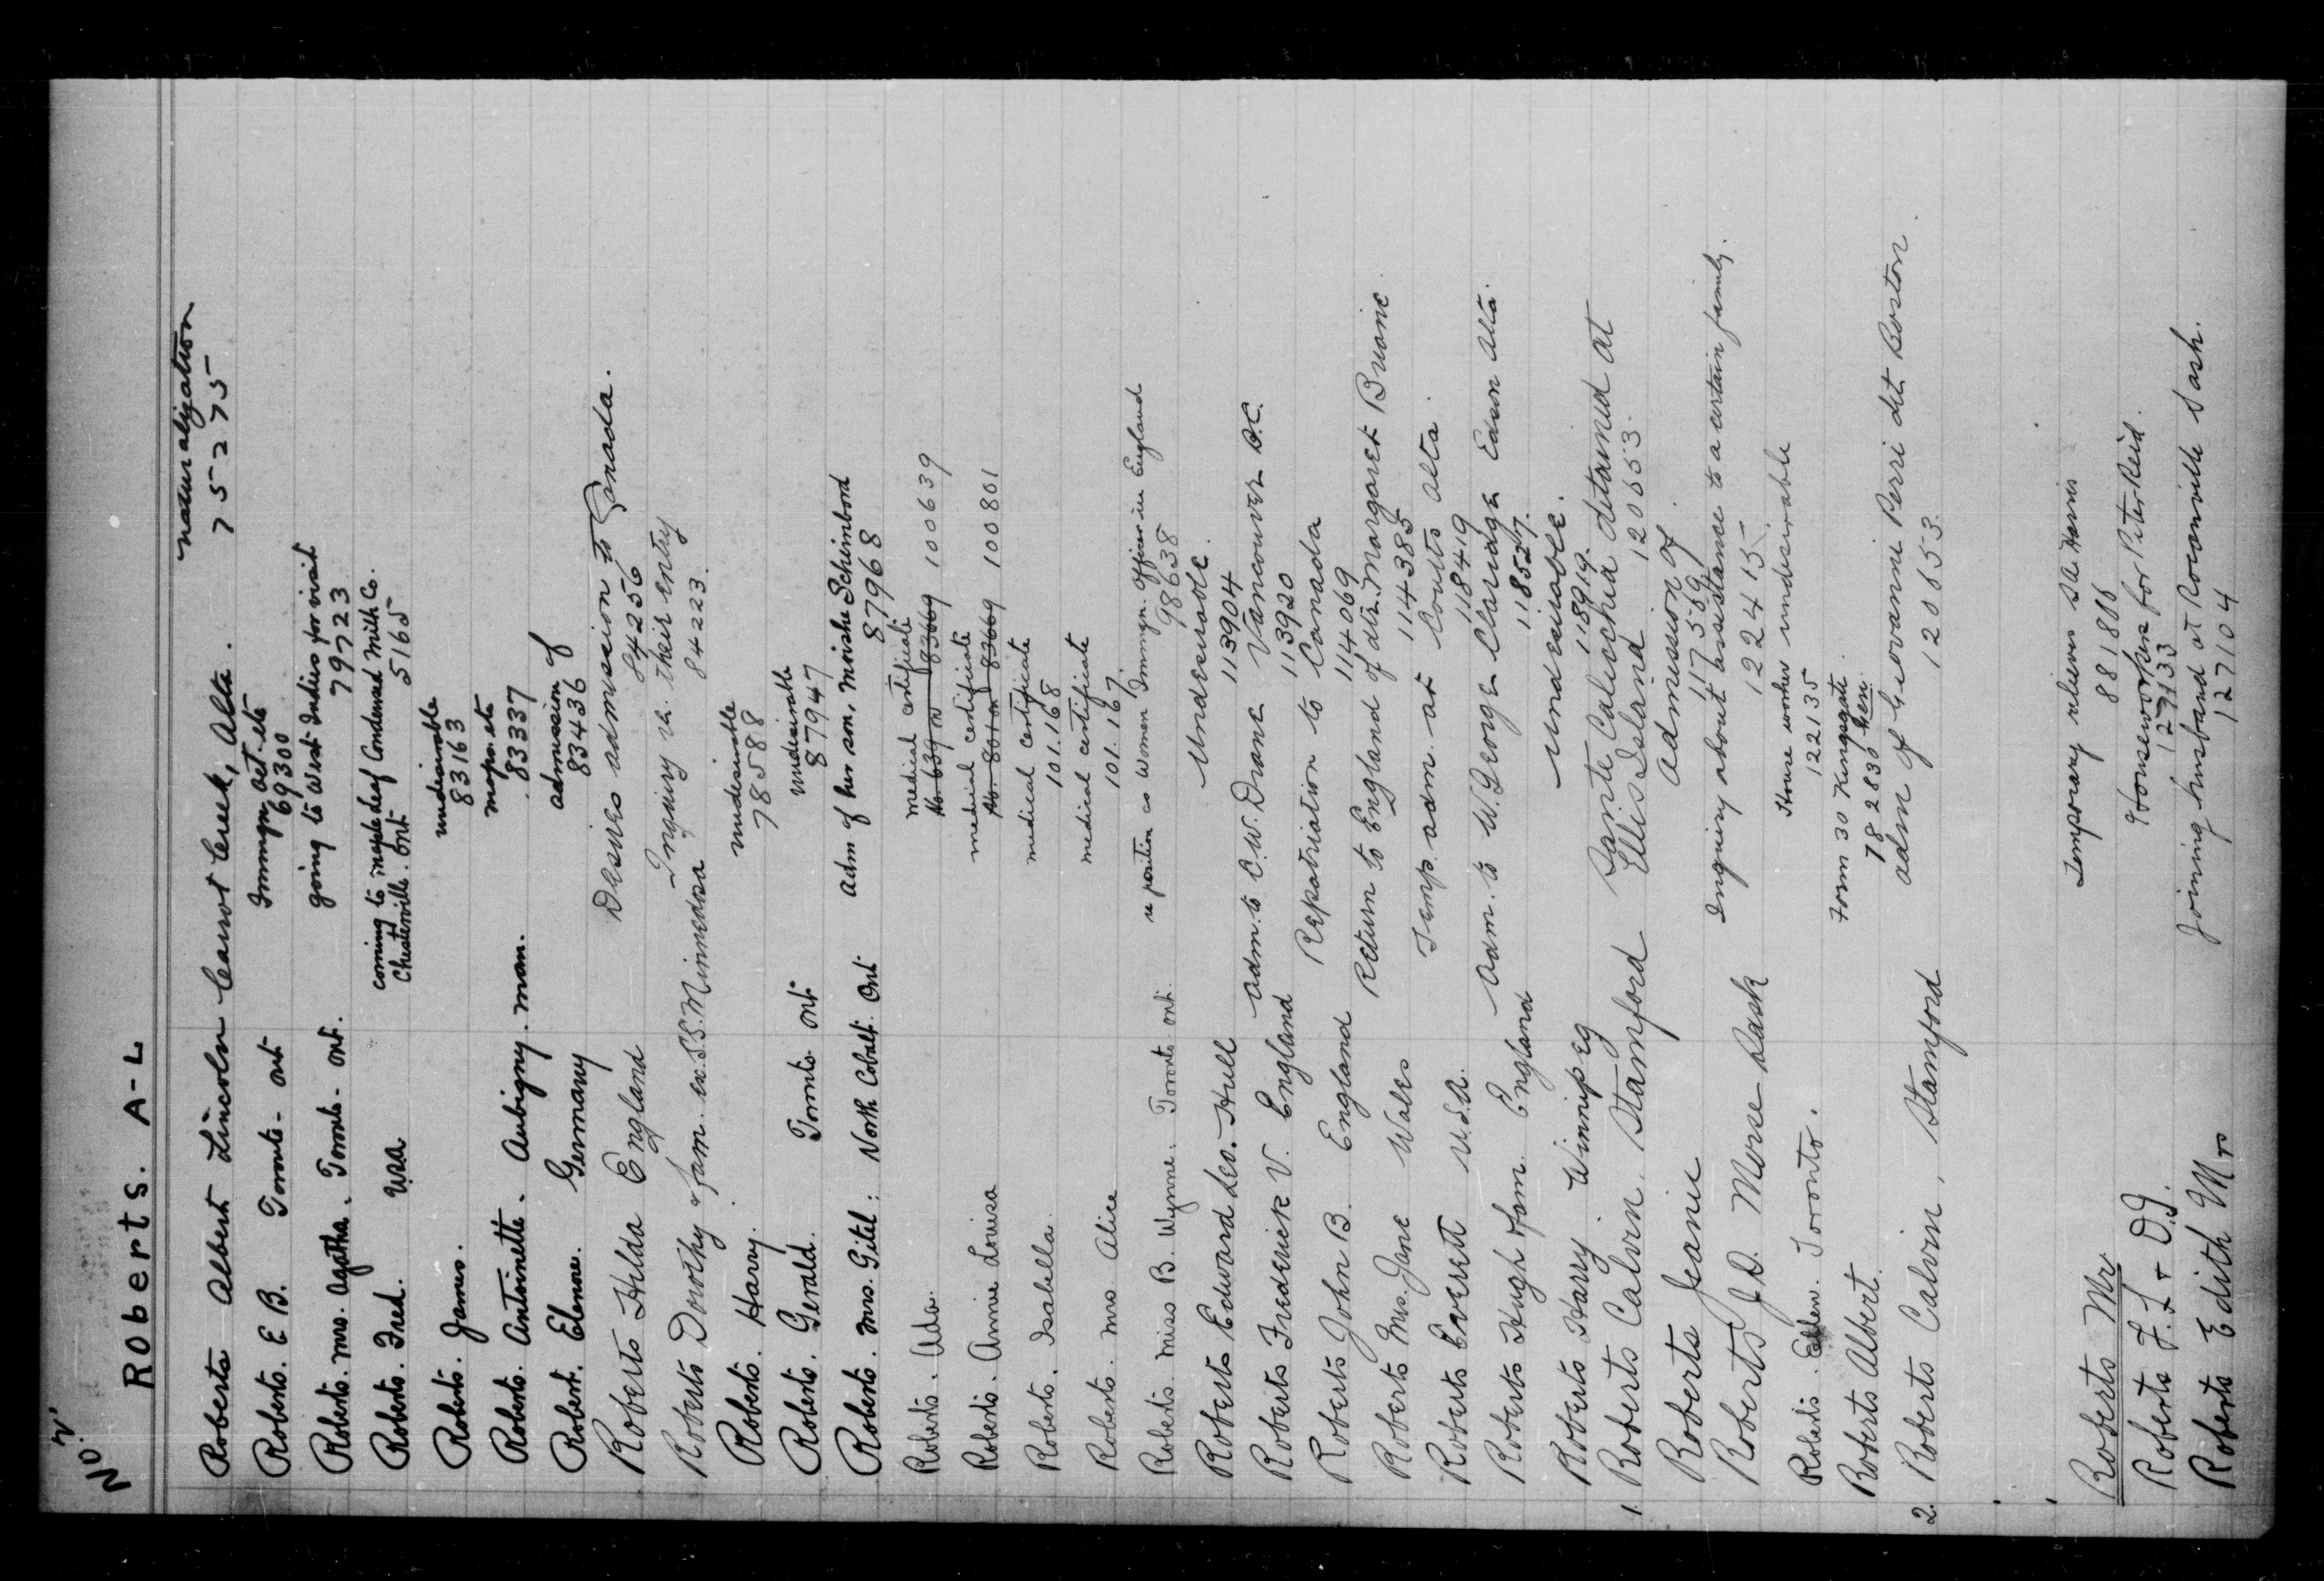 No. 2.
Roberts. A-L
Roberts Albert Lincoln Carrot Creek, Alta. naturalization
752775
Roberts. E B. Toronto - Ont Immign. act. etc
69300
Roberts. Mrs. Agatha. Toronto - Ont. going to West Indies for visit
79723
Roberts. Fred. USA coming to Maple Leaf Condensed Milk Co.
Chesterville. Ont 5165
Roberts. James. undesirable
83163
Roberts. Antoinette. Aubigny. Man. maps. etc
83337
Robert. Elenore. Germany admission of
83436
Roberts Hilda England Desires admission to Canada.
84256
Roberts Dorothy & fam. ex. S.S. Minnedosa Inquiry re. their entry
84223.
Roberts. Harry. undesirable
78588
Roberts. Gerald. Toronto. Ont undesirable
87947
Roberts. Mrs. Gitel: North Cobalt. Ont Adm of her son, Moishe Schimbord
87968
Roberts. Ada. medical certificate
100639
Roberts. Annie Louisa medical certificate
100801
Roberts. Isabella. medical certificate
101.168
Roberts. Mrs Alice medical certificate
101.167
Roberts. Miss B. Wynne. Toronto Ont. re position as Women Immign. Officer in England
98638
Roberts Edward Leo. Hull Undesirable.
113904
Roberts Frederick V. England Adm. to C.W. Drane Vancouver B.C.
113920
Roberts John B. England Repatriation to Canada
114069
Roberts Mrs. Jane Wales Return to England of dtr. Margaret Brionie
114385
Roberts Everett U.S.A. Temp. adm. at Coutts Alta.
118419
Roberts Hugh & fam. England Adm. to W. George Claridge Edson Alta.
118527.
Roberts Harry. Winnipeg Undesirable.
118919.
1. Roberts Calvin. Stamford Sante Caluschia detained at
Ellis Island. 120653.
Roberts Jeanie Admission of
117559
Roberts J.D. Morse Sask Enquiry about assistance to a certain family.
122415
Roberts. Ellen. Toronto. House worker undesirable
122135
Roberts Albert. Form 30 Kingsgate.
782830 Gen.
2. Roberts Calvin, Stamford adm of Giovanni Perri det Boston.
120653.
Roberts Mr. Temporary return SA Harris
881886
Roberts F.L + D.J. Houseworkers for Peter Reid.
127133
Roberts Edith Mrs Joining husband at Rocanville Sask.
127104